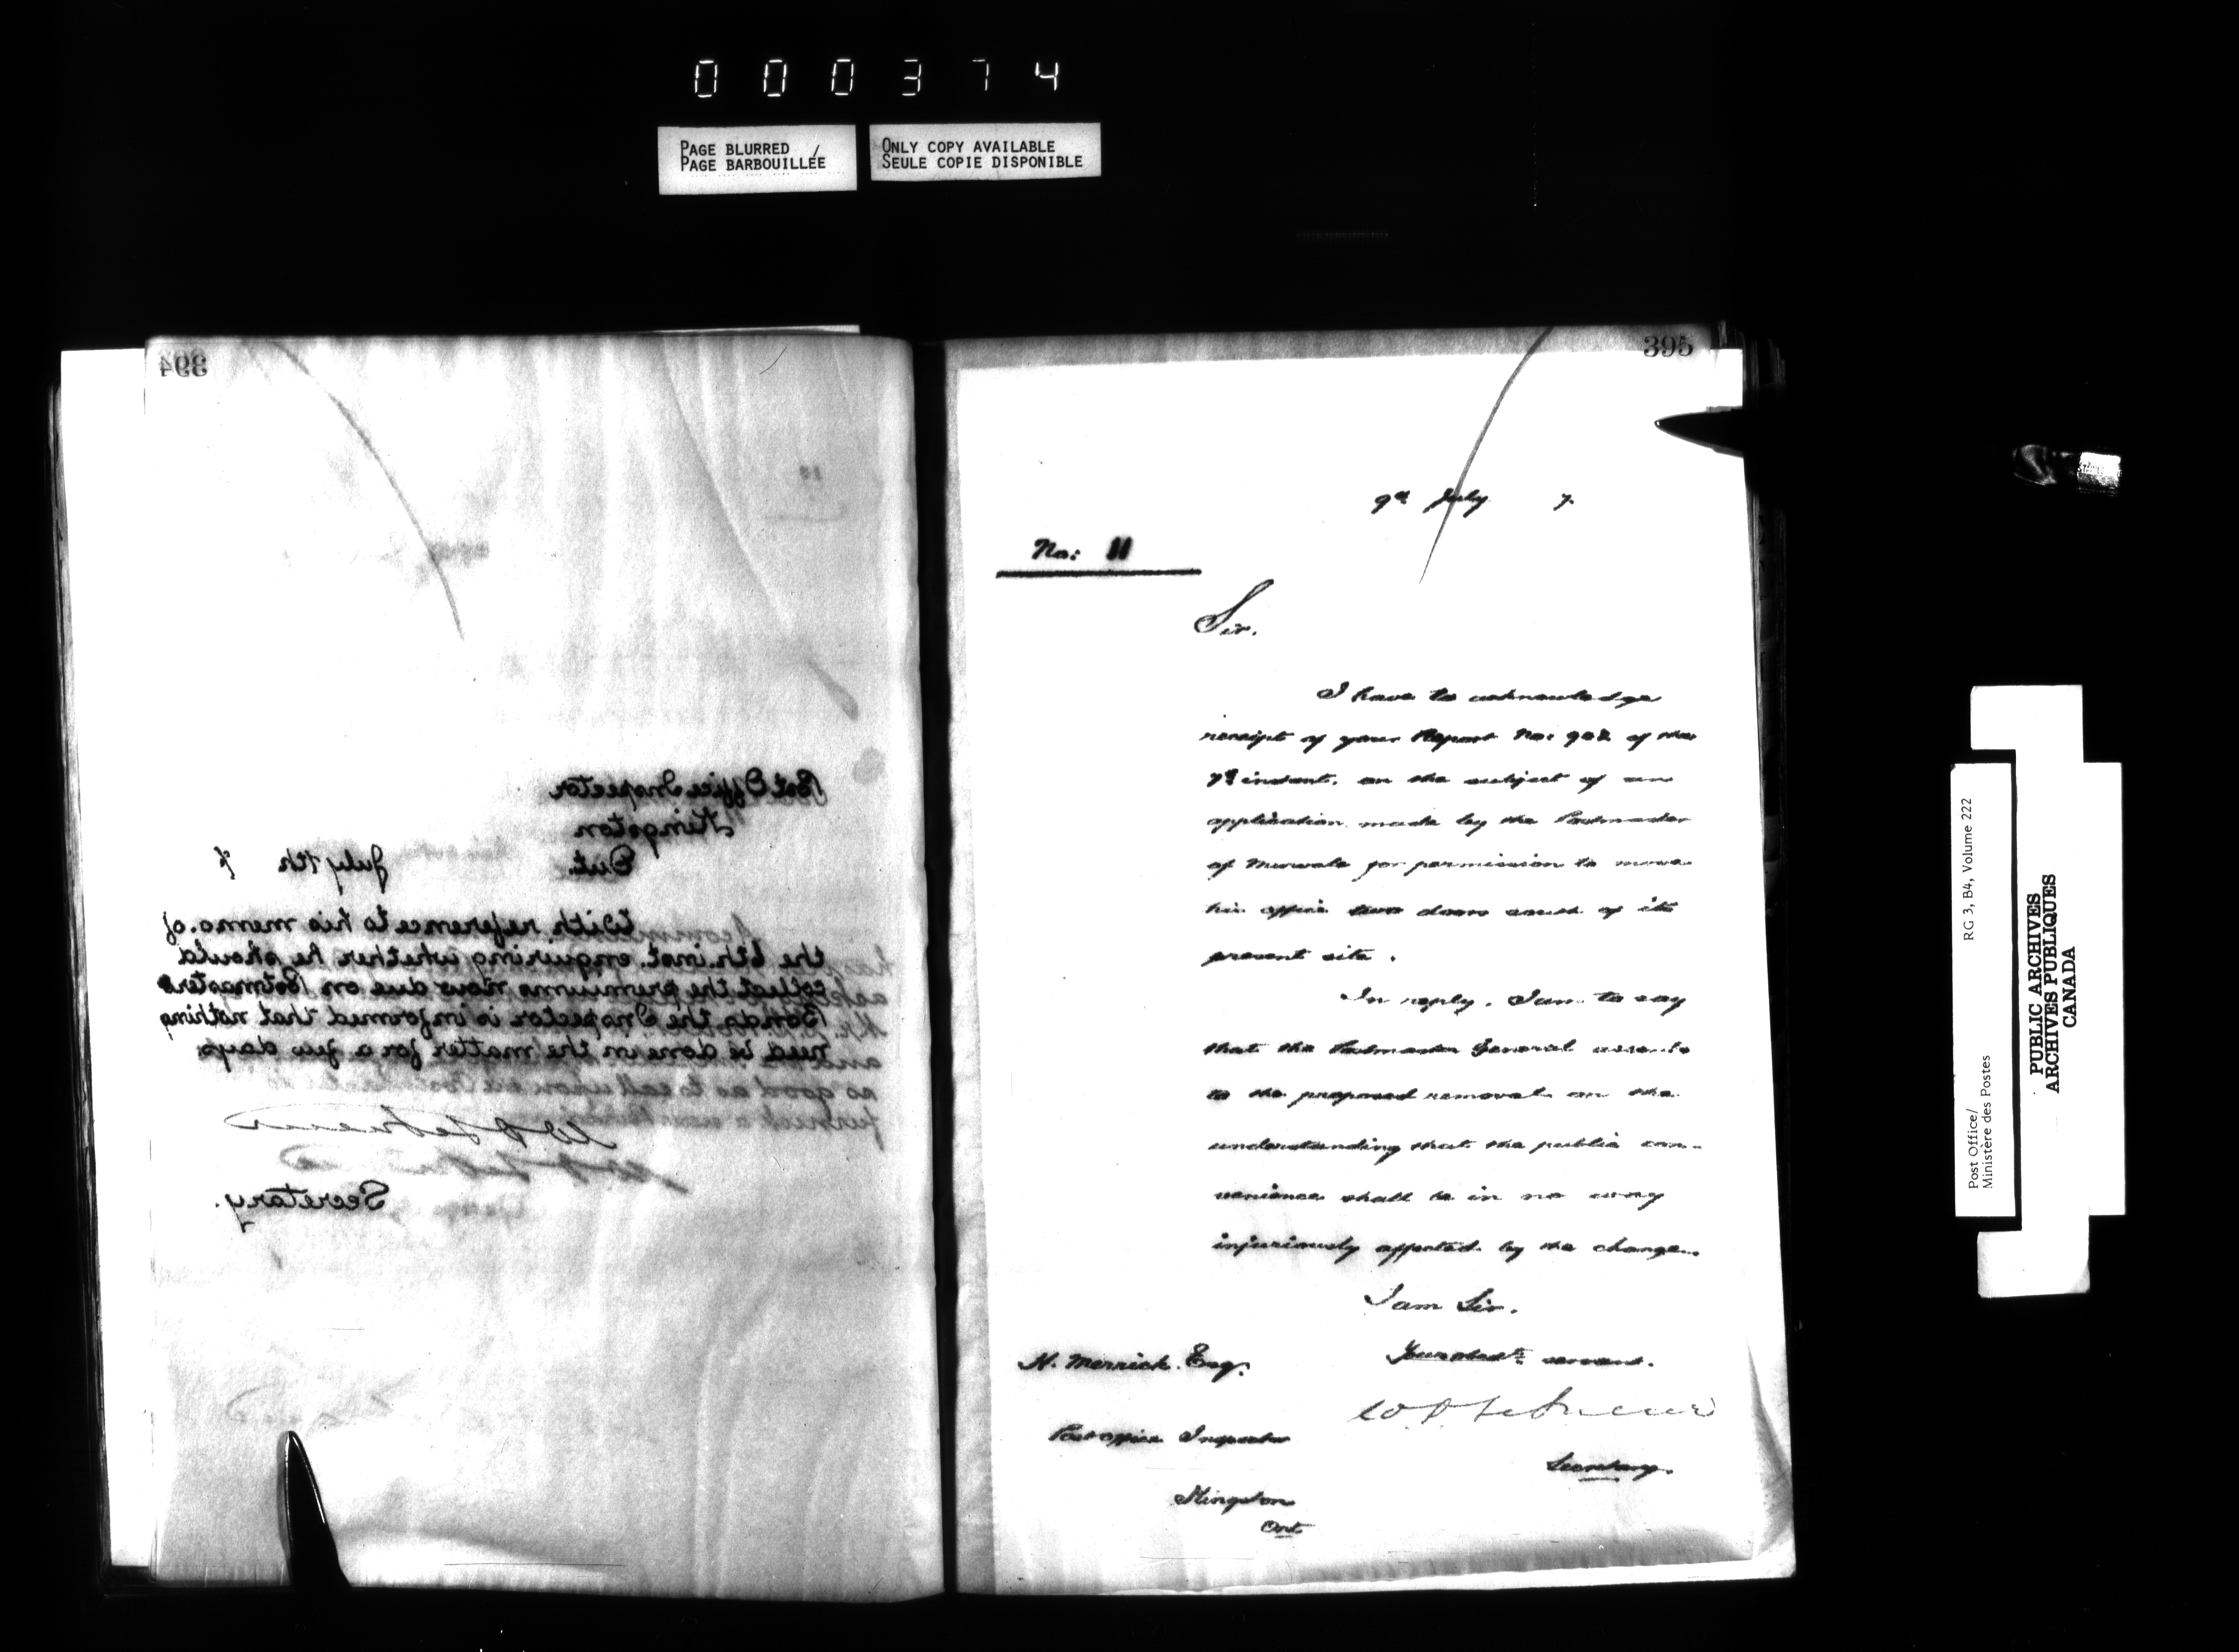 000374
PAGE BLURRED /
PAGE BARBOUILLÉE
ONLY COPY AVAILABLE
SEULE COPIE DISPONIBLE
394
Post Office Inspector
Kingston
Dist. July 7th 7
With reference to his memo. of
the 6th. inst. enquiring whether he should
collect the premiums now due on Postmasters
Bonds the Inspector is informed that nothing
need be done in the matter for a few days.
as good as to call upon
furnish a new
Secretary.
395
9th July 7.
No: 11
Sir.
I have to acknowledge
receipt of your Report No: 902 of the
7th instant, on the subject of an
application made by the Postmaster
of Murvale for permission to move
his office two doors south of its
present site.
In reply, I am to say
that the Postmaster General assents
to the proposed removal on the
understanding that the public con-
venience shall be in no way
injuriously affected by the change.
I am Sir.
Your obedt. servant.
H. Merrick. Esq.
Post office Inspector
Secretary.
Kingston
Ont.
Post Office/
Ministère des Postes
RG 3, B4, Volume 222
PUBLIC ARCHIVES
ARCHIVES PUBLIQUES
CANADA